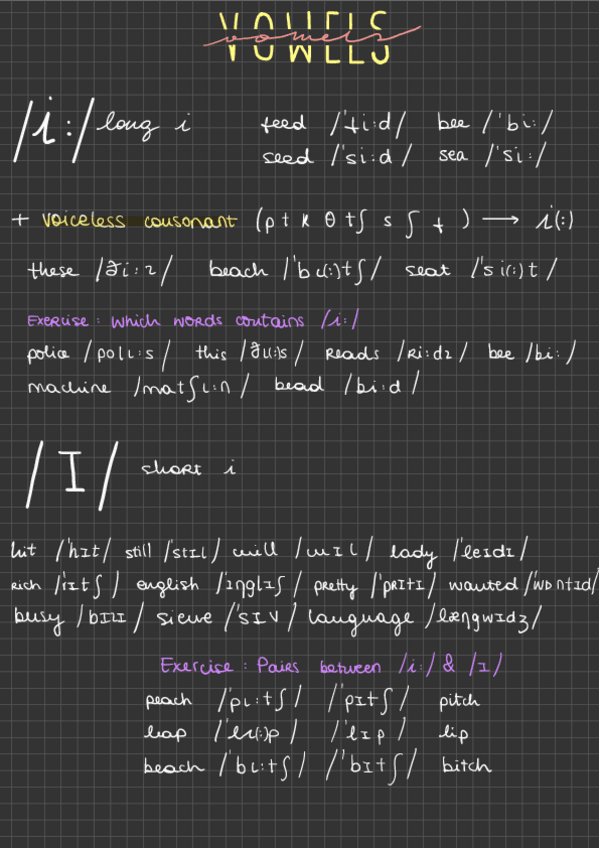 VOWELS
vowels
/i:/ long i feed /'fi:d/ bee /'bi:/
seed /'si:d/ sea /'si:/
+ voiceless consonant (p t k θ tʃ s ʃ f) → i(:)
these /ði:z/ beach /'bi(:)tʃ/ seat /'si(:)t/
Exercise: which words contains /i:/
police /poli:s/ this /ði(:)s/ Reads /Ri:dz/ bee /bi:/
machine /matʃi:n/ bead /bi:d/
/I/ short i
hit /'hɪt/ still /'stɪl/ will /wɪl/ lady /'leɪdɪ/
rich /'rɪtʃ/ english /'ɪŋglɪʃ/ pretty /'pRɪtɪ/ wanted /'wɒntɪd/
busy /bɪzɪ/ sieve /'sɪv/ language /læŋgwɪdʒ/
Exercise: Pairs between /i:/ & /ɪ/
peach /'pi:tʃ/ /'pɪtʃ/ pitch
leap /'li(:)p/ /'lɪp/ lip
beach /'bi:tʃ/ /'bɪtʃ/ bitch